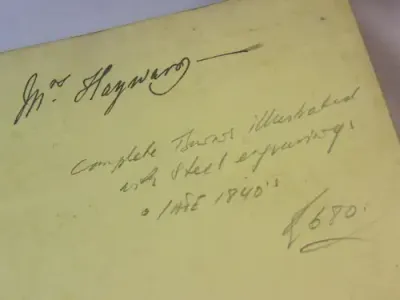 Mrs. Hayward
Complete Thomas illustrated
with Steel engravings
LATE 1840's
£680.